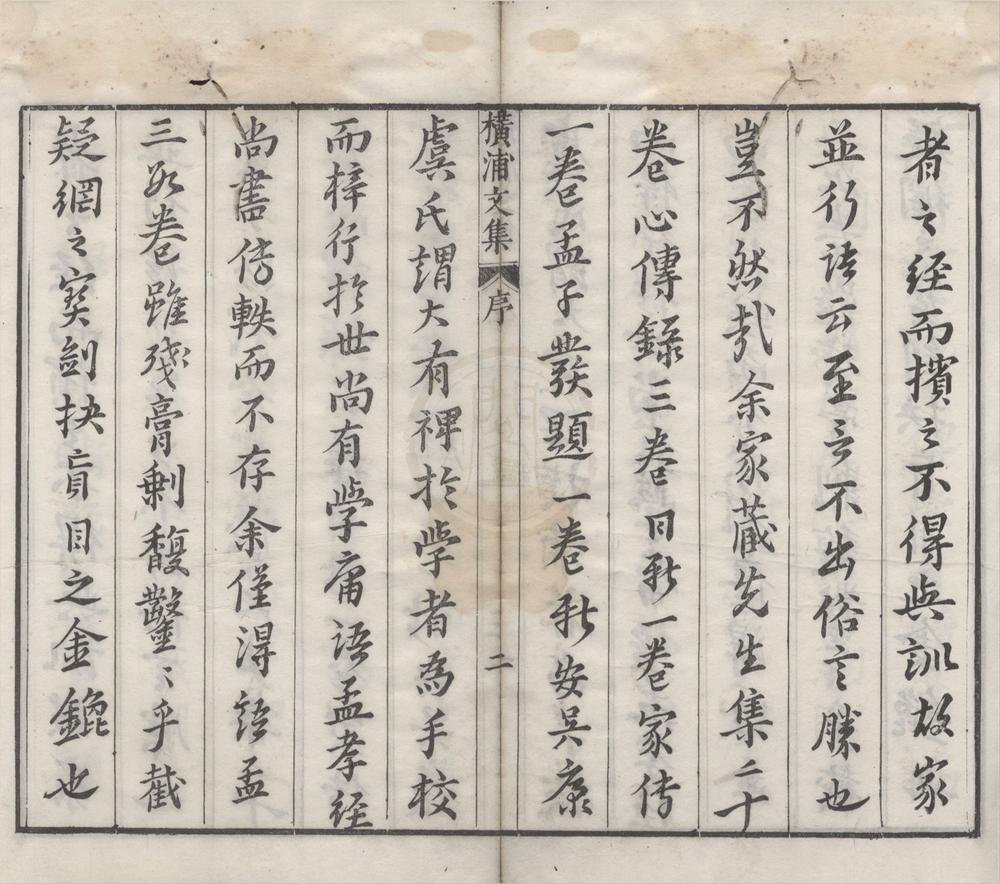 者之经而擯之不得與訓故家
並行语云至言不出俗言勝也
豈不然哉余家藏先生集二十
卷心傳録三卷日新一卷家传
一卷孟子發題一卷新安吴康
虞氏謂大有裨於學者為手校
而梓行於世尚有學庸语孟孝经
尚書傍軼而不存余僅淂語孟
三数卷雖残膏剩馥鑿〻乎截
疑網之寳劍抉盲目之金鎞也
橫浦文集
序
二